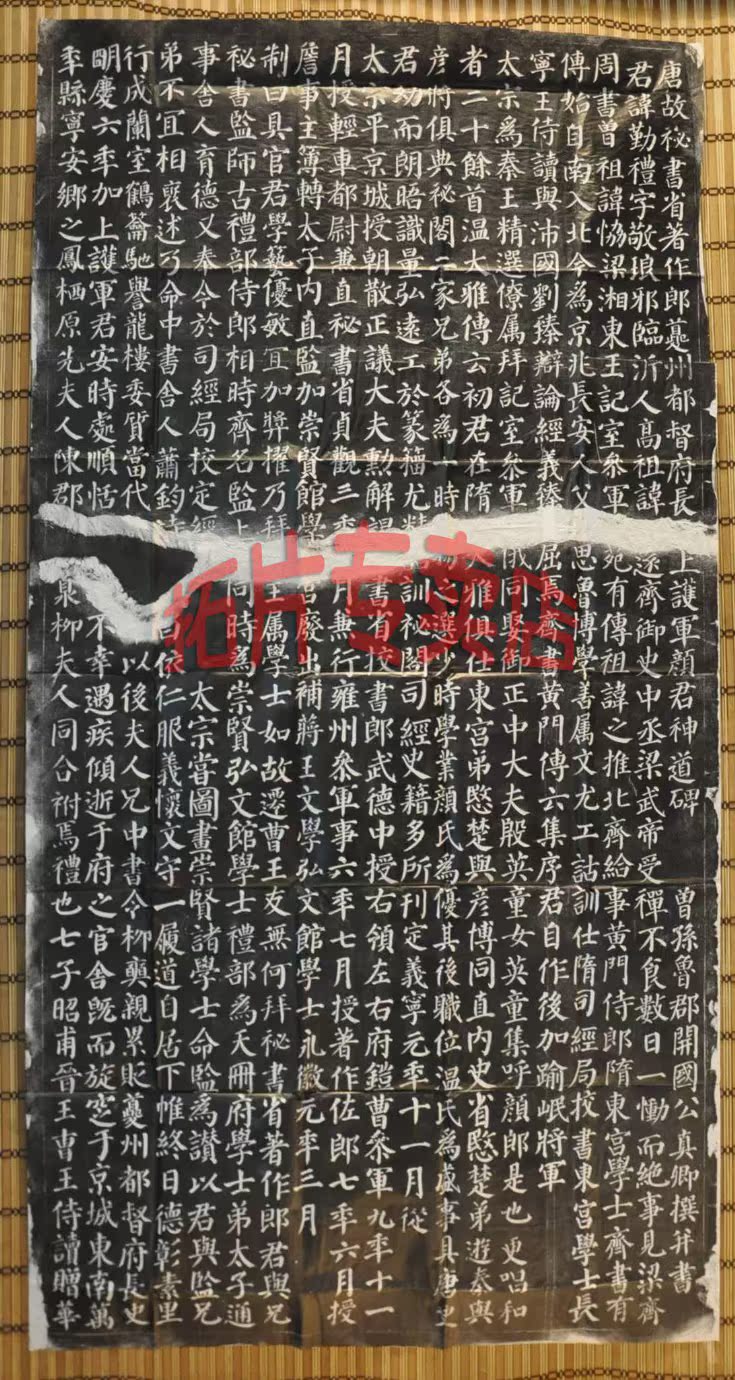 唐故祕書省著作郎夔州都督府長上護軍顏君神道碑
曾孫魯郡開國公真卿撰并書
君諱勤禮字敬琅邪臨沂人高祖諱遠齊御史中丞梁武帝受禪不食數日一慟而絕事見梁齊
周書曾祖諱恊梁湘東王記室參軍苑有傳祖諱之推北齊給事黃門侍郎隋東宮學士齊書有
傳始自南入北今為京兆長安人父思魯博學善屬文尤工詁訓仕隋司經局校書東宮學士長
寧王侍讀與沛國劉臻辯論經義臻屈焉齊書黃門傳云集序君自作後加踰岷將軍
太宗為秦王精選僚屬拜記室參軍儀同娶御正中大夫殷英童女英童集呼顏郎是也更唱和
者二十餘首溫大雅傳云初君在隋大雅俱仕東宮弟愍楚與彥博同直內史省愍楚弟遊秦與
彥將俱典祕閣二家兄弟各為一時之選少時學業顏氏為優其後職位溫氏為盛事具唐史
君幼而朗晤識量弘遠工於篆籀尤精訓祕閣司經史籍多所刊定義寧元年十一月從
太宗平京城授朝散正議大夫勳解褐書省校書郎武德中授右領左右府鎧曹參軍九年十一
月授輕車都尉兼直祕書省貞觀三年月兼行雍州參軍事六年七月授著作佐郎七年六月授
詹事主簿轉太子內直監加崇賢館學宮廢出補蔣王文學弘文館學士永徽元年三月
制曰具官君學藝優敏宜加獎擢乃拜王屬學士如故遷曹王友無何拜祕書省著作郎君與兄
祕書監師古禮部侍郎相時齊名監與同時為崇賢弘文館學士禮部為天冊府學士弟太子通
事舍人育德又奉令於司經局挍定經太宗嘗圖畫崇賢諸學士命監為讚以君與監兄
弟不宜相褒述乃命中書舍人蕭鈞曰依仁服義懷文守一履道自居下帷終日德彰素里
行成蘭室鶴籥馳譽龍樓委質當代以後夫人兄中書令柳奭親累貶夔州都督府長史
明慶六年加上護軍君安時處順恬不幸遇疾傾逝于府之官舍既而旋窆于京城東南萬
年縣寧安鄉之鳳栖原先夫人陳郡泉柳夫人同合祔焉禮也七子昭甫晉王曹王侍讀贈華
拓片专卖店